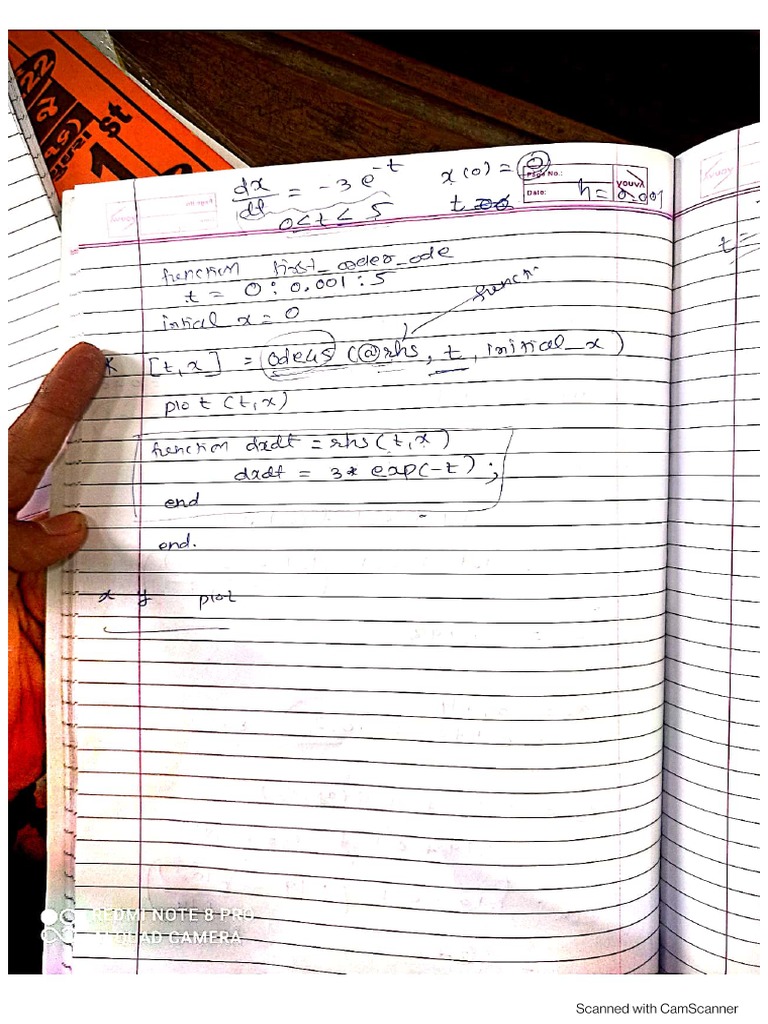 22
1st
dx/dt = -3 e^-t    x(0) = 0
Page No.:
Date:
youva
0 < t < 5    t    h = 0.001
t =
function first_order_ode
t = 0 : 0.001 : 5
intial x = 0
functi
* [t, x] = ode45 (@rhs, t, initial_x)
plot (t, x)
function dxdt = rhs (t, x)
dxdt = 3* exp(-t) ;
end
end.
x y plot
REDMI NOTE 8 PRO
AI QUAD CAMERA
Scanned with CamScanner